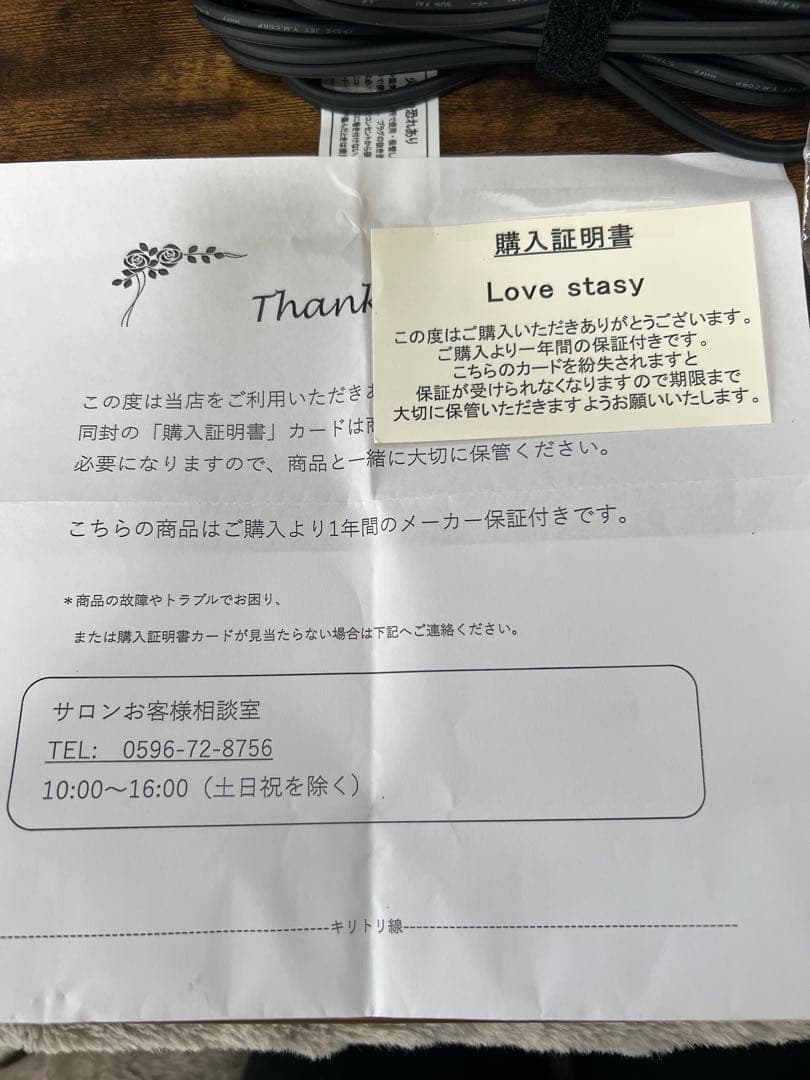 JET Y.M.CORP
SUN FAI
恐れあり
Thank
購入証明書
Love stasy
この度はご購入いただきありがとうございます。
ご購入より一年間の保証付きです。
こちらのカードを紛失されますと
保証が受けられなくなりますので期限まで
大切に保管いただきますようお願いいたします。
この度は当店をご利用いただきあ
同封の「購入証明書」カードは商
必要になりますので、商品と一緒に大切に保管ください。
こちらの商品はご購入より1年間のメーカー保証付きです。
＊商品の故障やトラブルでお困り、
または購入証明書カードが見当たらない場合は下記へご連絡ください。
サロンお客様相談室
TEL: 0596-72-8756
10:00〜16:00（土日祝を除く）
キリトリ線